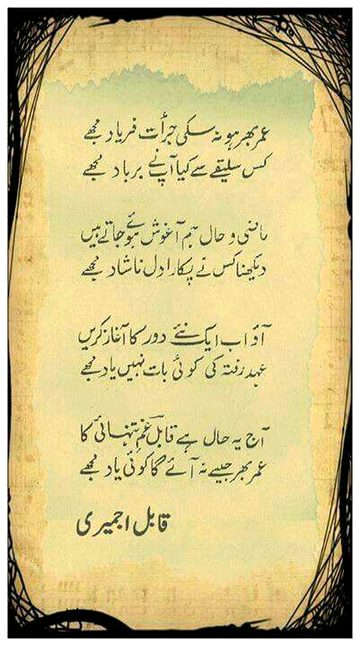 عمر بھر ہو نہ سکی جرأت فریاد مجھے
کس سلیقے سے کیا آپ نے برباد مجھے
ماضی و حال ہم آغوش ہوئے جاتے ہیں
دیکھنا کس نے پکارا دل ناشاد مجھے
آؤ اب ایک نئے دور کا آغاز کریں
عہد رفتہ کی کوئی بات نہیں یاد مجھے
آج یہ حال ہے قابل غم تنہائی کا
عمر بھر جیسے نہ آئے گا کوئی یاد مجھے
قابل اجمیری